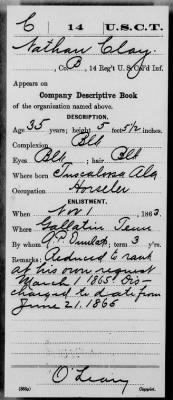 C | 14 | U.S.C.T.
Nathan Clay
, Co. B, 14 Reg't U. S. Col'd Inf.
Appears on
Company Descriptive Book
of the organization named above.
DESCRIPTION.
Age 35 years; height 5 feet 5 1/2 inches.
Complexion Blk
Eyes Blk ; hair Blk
Where born Tuscaloosa Ala
Occupation
ENLISTMENT.
When Nov 1 , 1863.
Where Gallatin Tenn
By whom A.P. Dunlap ; term 3 y'rs.
Remarks: Reduced to rank
at his own request
March 1 1865. Dis-
charged to date from
June 21, 1865
O'Leary
Copyist.